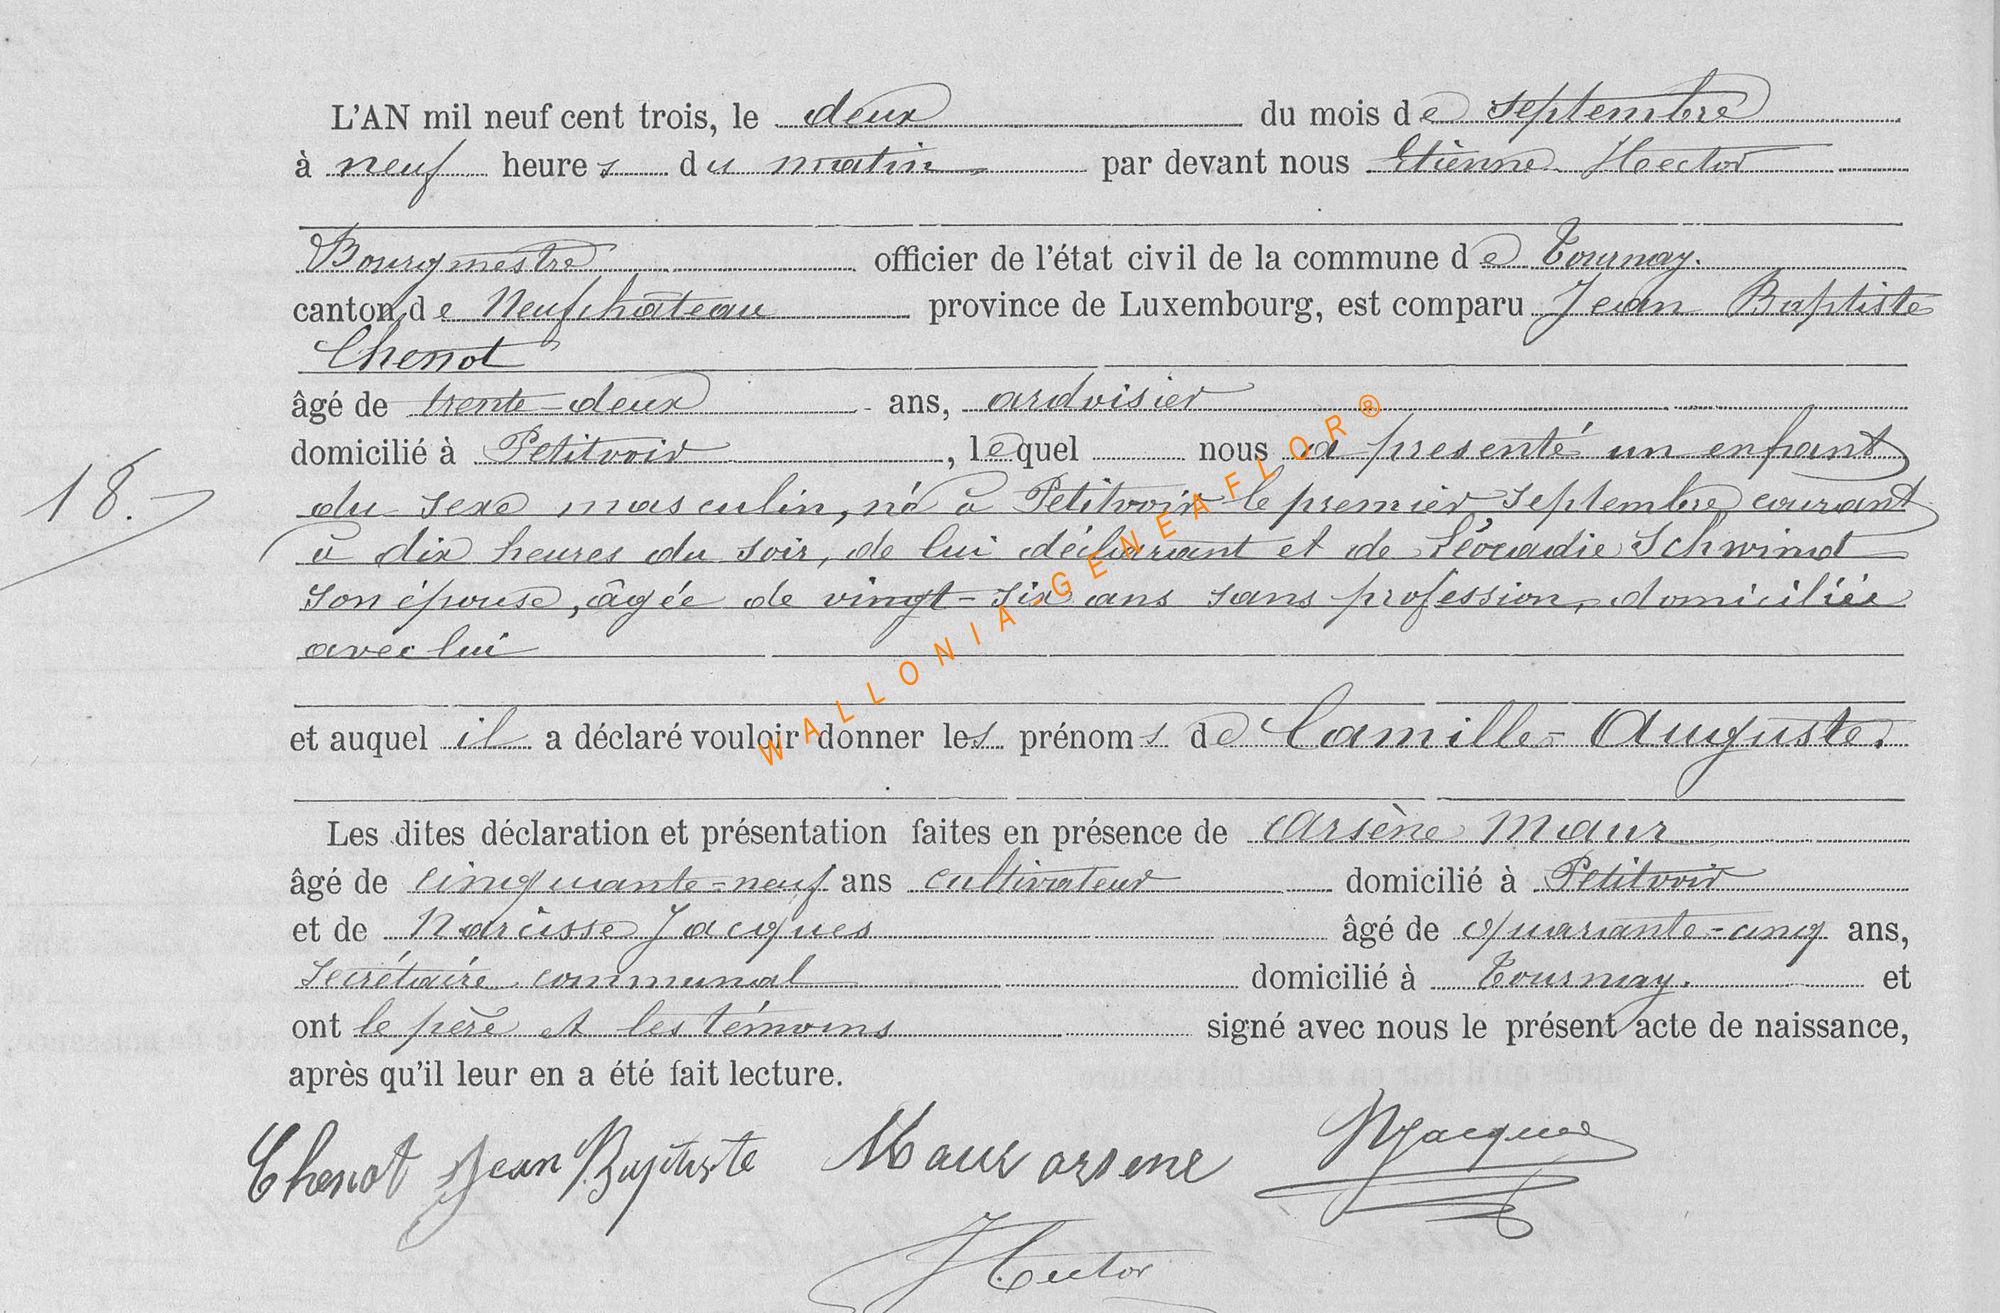 L'AN mil neuf cent trois, le deux du mois de septembre
à neuf heures du matin par devant nous Etienne Hector
Bourgmestre officier de l'état civil de la commune de Tournay.
canton de Neufchâteau province de Luxembourg, est comparu Jean Baptiste
Chenot
âgé de trente-deux ans, ardoisier
domicilié à Petitvoir, lequel nous a presenté un enfant
18.-
du sexe masculin, né à Petitvoir le premier septembre courant
à dix heures du soir, de lui déclarant et de Léocadie Schwind
son épouse, âgée de vingt-six ans sans profession, domiciliée
avec lui
et auquel il a déclaré vouloir donner les prénoms de Camille-Auguste.
Les dites déclaration et présentation faites en présence de Arsène Maur
âgé de cinquante-neuf ans cultivateur domicilié à Petitvoir
et de Narcisse Jacques âgé de quarante-cinq ans,
secrétaire communal domicilié à Tournay. et
ont le père et les témoins signé avec nous le présent acte de naissance,
après qu'il leur en a été fait lecture.
Chenot Jean Baptiste Maur arsene NJacques
Hector
WALLONIA GENEAFLOR®